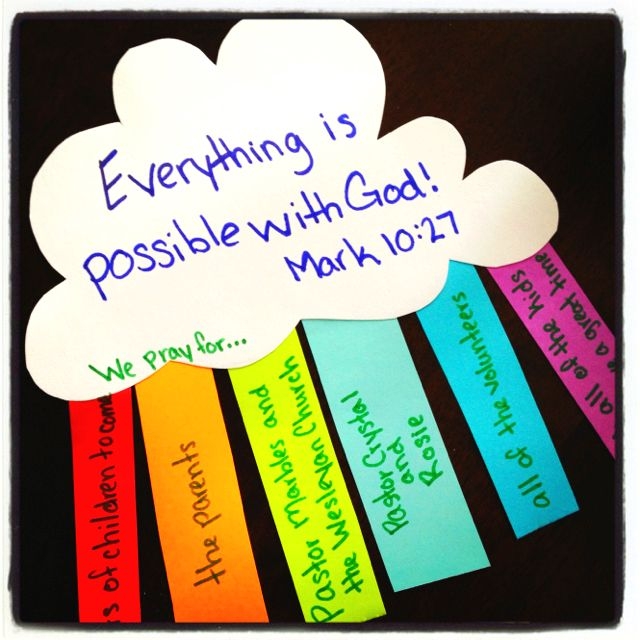 Everything is
possible with God!
Mark 10:27
We pray for...
of children to come
the parents
Pastor Marbles and
the Wesleyan Church
Pastor Crystal
and
Rosie
all of the volunteers
all of the kids
a great time